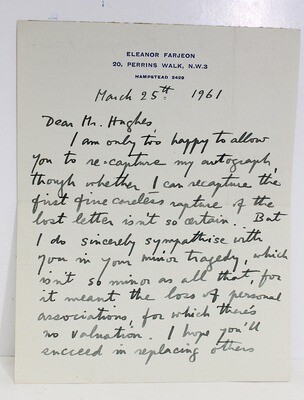 ELEANOR FARJEON
20, PERRINS WALK, N.W.3
HAMPSTEAD 2429
March 25th 1961
Dear Mr. Hughes
I am only too happy to allow
you to re-capture my autograph,
though whether I can recapture the
first fine careless rapture of the
lost letter isn't so certain. But
I do sincerely sympathise with
you in your minor tragedy, which
isn't so minor as all that, for
it meant the loss of personal
associations, for which there's
no valuation. I hope you'll
succeed in replacing others